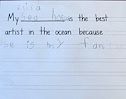 My sea horse is the best
artist in the ocean because
is my fan